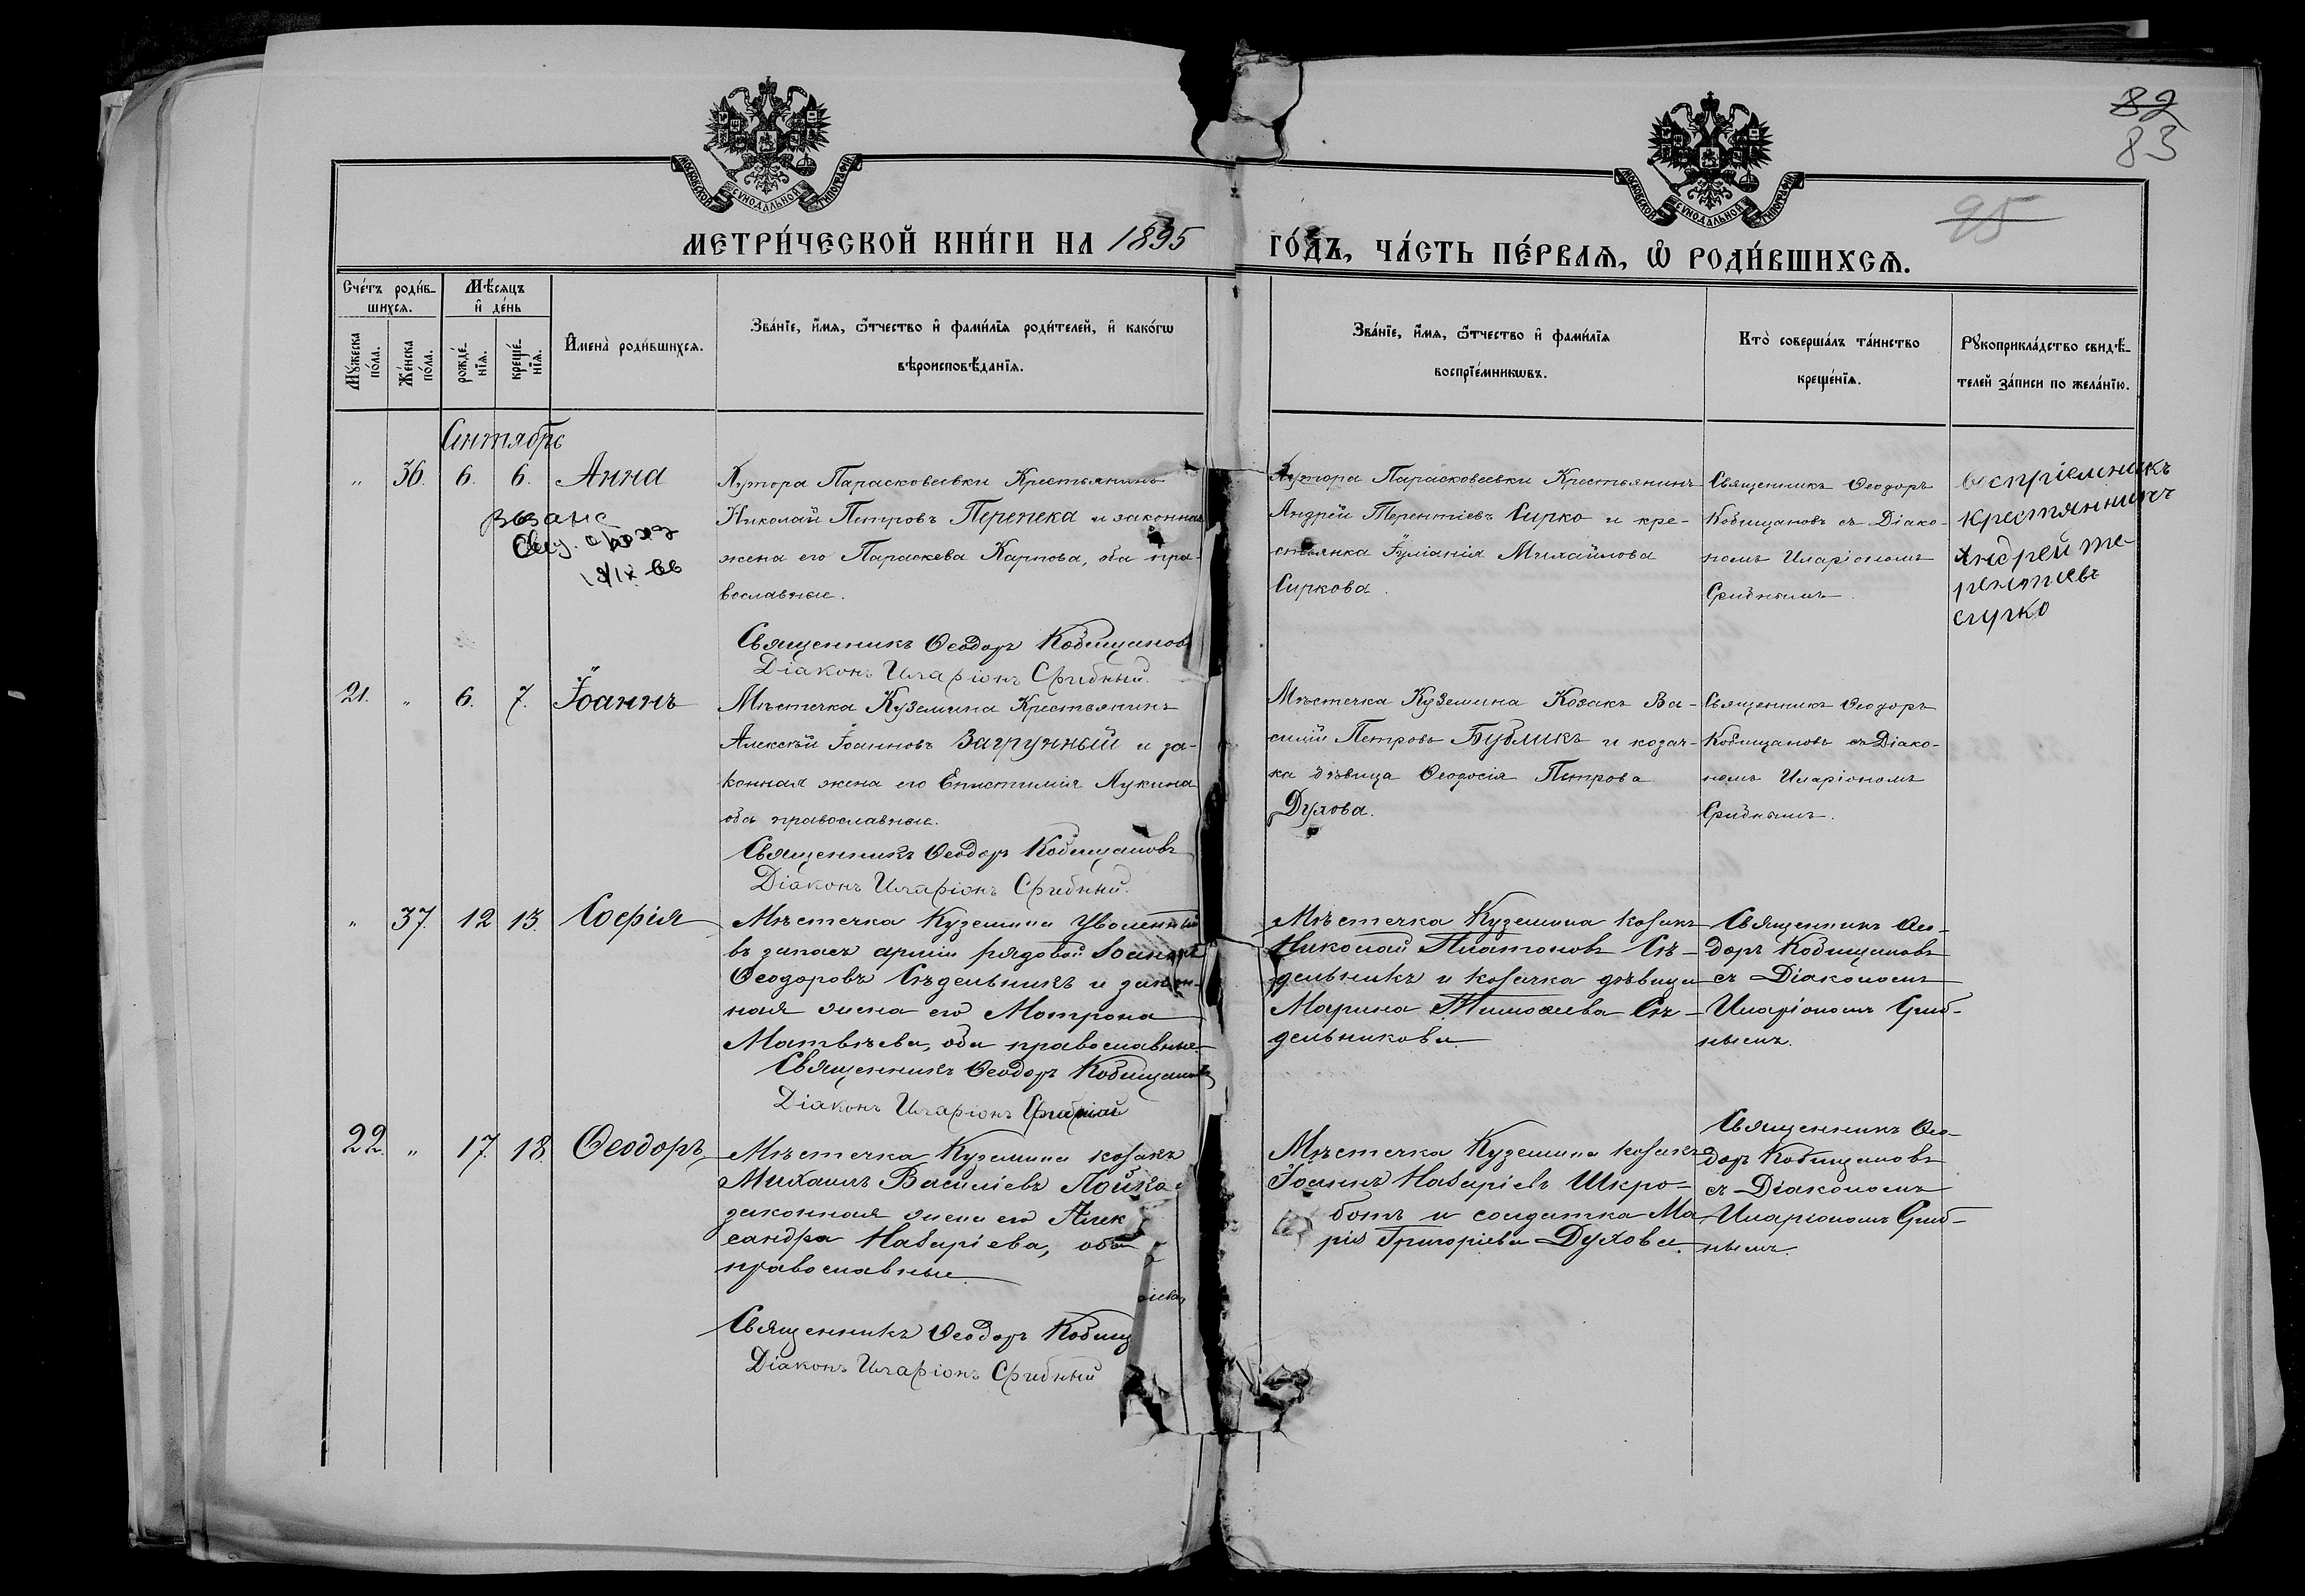 82
83
95
МОСКОВСКОЙ СѴНОДАЛЬНОЙ ТИПОГРАФІИ
МОСКОВСКОЙ СѴНОДАЛЬНОЙ ТИПОГРАФІИ
МЕТРИ́ЧЕСКОЙ КНИ́ГИ НА 1895
ГО́ДЪ, ЧА́СТЬ ПЕ́РВАЯ, Ѡ҆ РОДИ́ВШИХСЯ.
Сче́тъ роди́в-
шихся.
Мѣ́сяцъ
и҆ де́нь
Му́жеска
по́ла.
Же́нска
по́ла.
рожде́-
нїя.
креще́-
нїя.
И҆мена̀ роди́вшихся.
Зва́нїе, и҆́мя, ѻ҆́тчество и҆ фами́лїя роди́телей, и҆ како́гѡ
вѣроисповѣ́данїя.
Зва́нїе, и҆́мя, ѻ҆́тчество и҆ фами́лїя
воспрїе́мникѡвъ.
Кто̀ соверша́лъ та́инство
креще́нїя.
Рꙋкоприкла́дство свидѣ́-
телей за́писи по жела́нїю.
Сентябрь
" 36. 6. 6. Анна
Хутора Парасковеевки Крестьянинъ
Николай Петровъ Перепека и законная
жена его Параскева Карпова, оба пра-
вославные.
Священникъ Ѳеодоръ Кобищановъ
Діаконъ Иларіонъ Срибный.
Хутора Парасковеевки Крестьянинъ
Андрей Терентіевъ Сирко и кре-
стьянка Іуліанія Михайлова
Сиркова.
Священникъ Ѳеодоръ
Кобищановъ съ Діако-
номъ Иларіономъ
Срибнымъ.
воспріемникъ
крестянинъ
Андрей те-
рентиевъ
сирко
21. " 6. 7. Іоаннъ
Мѣстечка Куземина Крестьянинъ
Алексѣй Іоанновъ Загрунный и за-
конная жена его Епистимія Лукина
оба православные.
Священникъ Ѳеодоръ Кобищановъ
Діаконъ Иларіонъ Срибный.
Мѣстечка Куземина Козакъ Ва-
силій Петровъ Бубликъ и козач-
ка дѣвица Ѳеодосія Петрова
Духова.
Священникъ Ѳеодоръ
Кобищановъ съ Діако-
номъ Иларіономъ
Срибнымъ.
" 37. 12 13. Софія
Мѣстечка Куземина уволенный
въ запасъ арміи рядовой Іоаннъ
Ѳеодоровъ Сѣдельникъ и закон-
ная жена его Матрона
Матвѣева, оба православные.
Священникъ Ѳеодоръ Кобищановъ
Діаконъ Иларіонъ Срибный
Мѣстечка Куземина козакъ
Николай Платоновъ Сѣ-
дельникъ и козачка дѣвица
Марина Тимоѳеева Сѣ-
дельникова.
Священникъ Ѳео-
доръ Кобищановъ
съ Діакономъ
Иларіономъ Сриб-
нымъ.
22. " 17. 18. Ѳеодоръ
Мѣстечка Куземина козакъ
Михаилъ Василіевъ Лойко
законная жена его Алек
сандра Назаріева, оба
православные.
Священникъ Ѳеодоръ Кобищ
Діаконъ Иларіонъ Срибный
Мѣстечка Куземина козакъ
Іоаннъ Назаріевъ Шкро-
ботъ и солдатка Ма-
рія Григоріева Духова.
Священникъ Ѳео-
доръ Кобищановъ
съ Діакономъ
Иларіономъ Сриб-
нымъ.